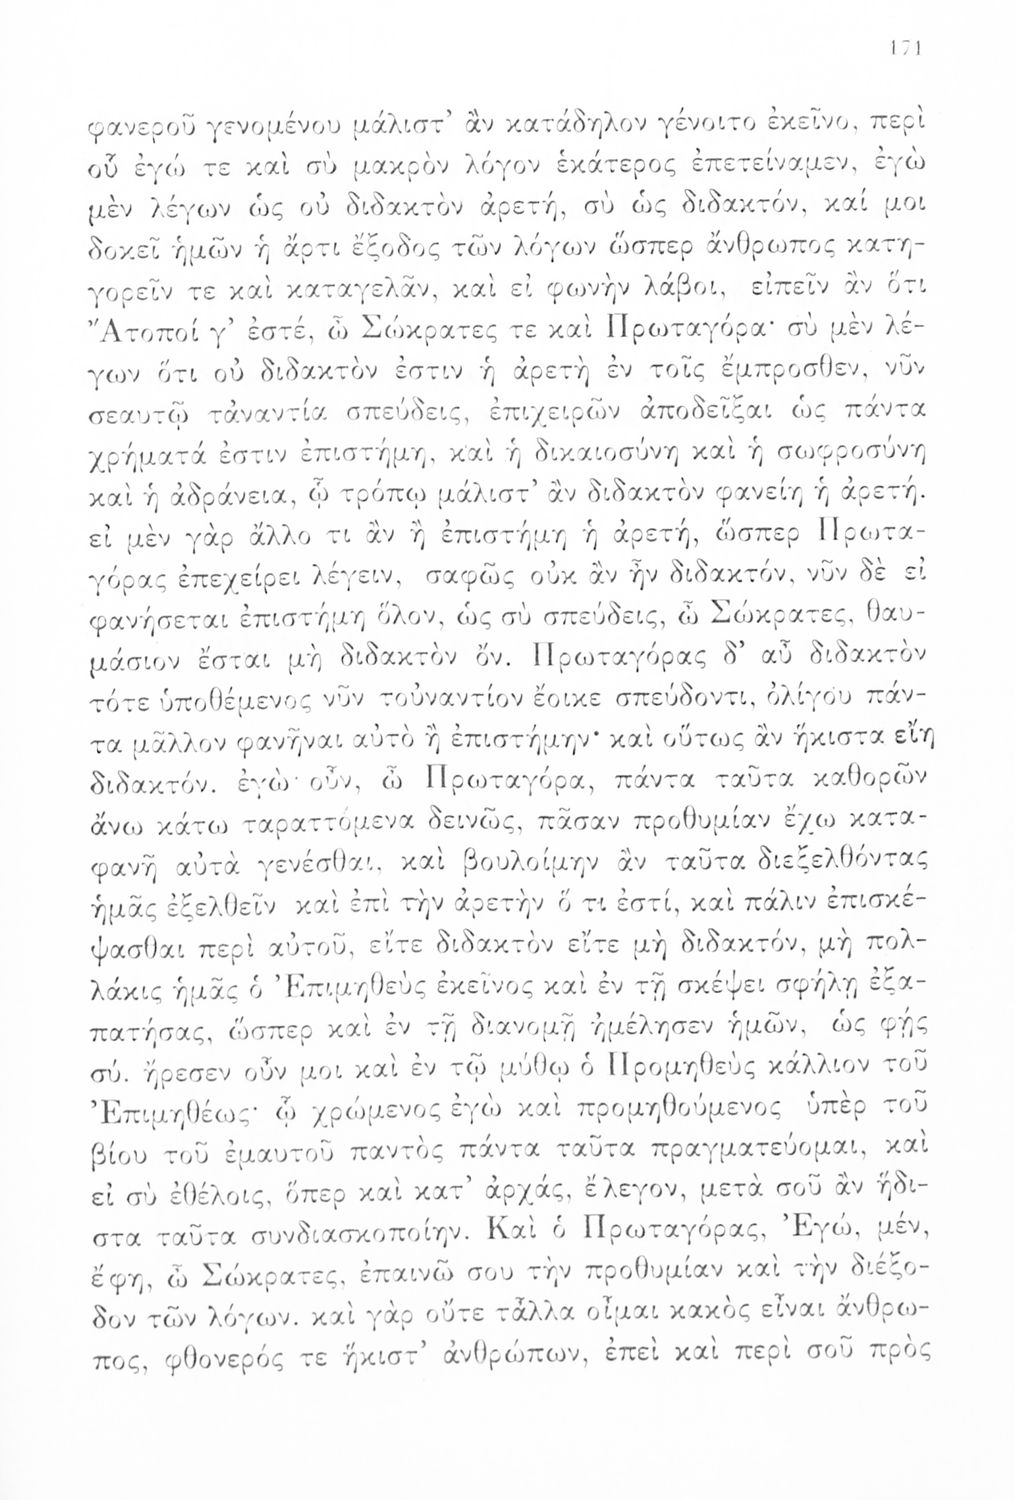 171
φανεροῦ γενομένου μάλιστ’ ἂν κατάδηλον γένοιτο ἐκεῖνο, περὶ
οὗ ἐγώ τε καὶ σὺ μακρὸν λόγον ἑκάτερος ἐπετείναμεν, ἐγὼ
μὲν λέγων ὡς οὐ διδακτὸν ἀρετή, σὺ ὡς διδακτόν, καί μοι
δοκεῖ ἡμῶν ἡ ἄρτι ἔξοδος τῶν λόγων ὥσπερ ἄνθρωπος κατη-
γορεῖν τε καὶ καταγελᾶν, καὶ εἰ φωνὴν λάβοι, εἰπεῖν ἂν ὅτι
"Ἄτοποί γ’ ἐστέ, ὦ Σώκρατες τε καὶ Πρωταγόρα· σὺ μὲν λέ-
γων ὅτι οὐ διδακτὸν ἐστιν ἡ ἀρετὴ ἐν τοῖς ἔμπροσθεν, νῦν
σεαυτῷ τἀναντία σπεύδεις, ἐπιχειρῶν ἀποδεῖξαι ὡς πάντα
χρήματά ἐστιν ἐπιστήμη, καὶ ἡ δικαιοσύνη καὶ ἡ σωφροσύνη
καὶ ἡ ἀδράνεια, ᾧ τρόπῳ μάλιστ’ ἂν διδακτὸν φανείη ἡ ἀρετή.
εἰ μὲν γὰρ ἄλλο τι ἂν ἢ ἐπιστήμη ἡ ἀρετή, ὥσπερ Πρωτα-
γόρας ἐπεχείρει λέγειν, σαφῶς οὐκ ἂν ἦν διδακτόν, νῦν δὲ εἰ
φανήσεται ἐπιστήμη ὅλον, ὡς σὺ σπεύδεις, ὦ Σώκρατες, θαυ-
μάσιον ἔσται μὴ διδακτὸν ὄν. Πρωταγόρας δ’ αὖ διδακτὸν
τότε ὑποθέμενος νῦν τοὐναντίον ἔοικε σπεύδοντι, ὀλίγου πάν-
τα μᾶλλον φανῆναι αὐτὸ ἢ ἐπιστήμην· καὶ οὕτως ἂν ἥκιστα εἴη
διδακτόν. ἐγὼ οὖν, ὦ Πρωταγόρα, πάντα ταῦτα καθορῶν
ἄνω κάτω ταραττόμενα δεινῶς, πᾶσαν προθυμίαν ἔχω κατα-
φανῆ αὐτὰ γενέσθαι, καὶ βουλοίμην ἂν ταῦτα διεξελθόντας
ἡμᾶς ἐξελθεῖν καὶ ἐπὶ τὴν ἀρετὴν ὅ τι ἐστί, καὶ πάλιν ἐπισκέ-
ψασθαι περὶ αὐτοῦ, εἴτε διδακτὸν εἴτε μὴ διδακτόν, μὴ πολ-
λάκις ἡμᾶς ὁ Ἐπιμηθεὺς ἐκεῖνος καὶ ἐν τῇ σκέψει σφήλῃ ἐξα-
πατήσας, ὥσπερ καὶ ἐν τῇ διανομῇ ἠμέλησεν ἡμῶν, ὡς φῄς
σύ. ἤρεσεν οὖν μοι καὶ ἐν τῷ μύθῳ ὁ Προμηθεὺς κάλλιον τοῦ
Ἐπιμηθέως· ᾧ χρώμενος ἐγὼ καὶ προμηθούμενος ὑπὲρ τοῦ
βίου τοῦ ἐμαυτοῦ παντὸς πάντα ταῦτα πραγματεύομαι, καὶ
εἰ σὺ ἐθέλοις, ὅπερ καὶ κατ’ ἀρχάς, ἔλεγον, μετὰ σοῦ ἂν ἥδι-
στα ταῦτα συνδιασκοποίην. Καὶ ὁ Πρωταγόρας, Ἐγώ, μέν,
ἔφη, ὦ Σώκρατες, ἐπαινῶ σου τὴν προθυμίαν καὶ τὴν διέξο-
δον τῶν λόγων. καὶ γὰρ οὔτε τἆλλα οἶμαι κακὸς εἶναι ἄνθρω-
πος, φθονερός τε ἥκιστ’ ἀνθρώπων, ἐπεὶ καὶ περὶ σοῦ πρὸς